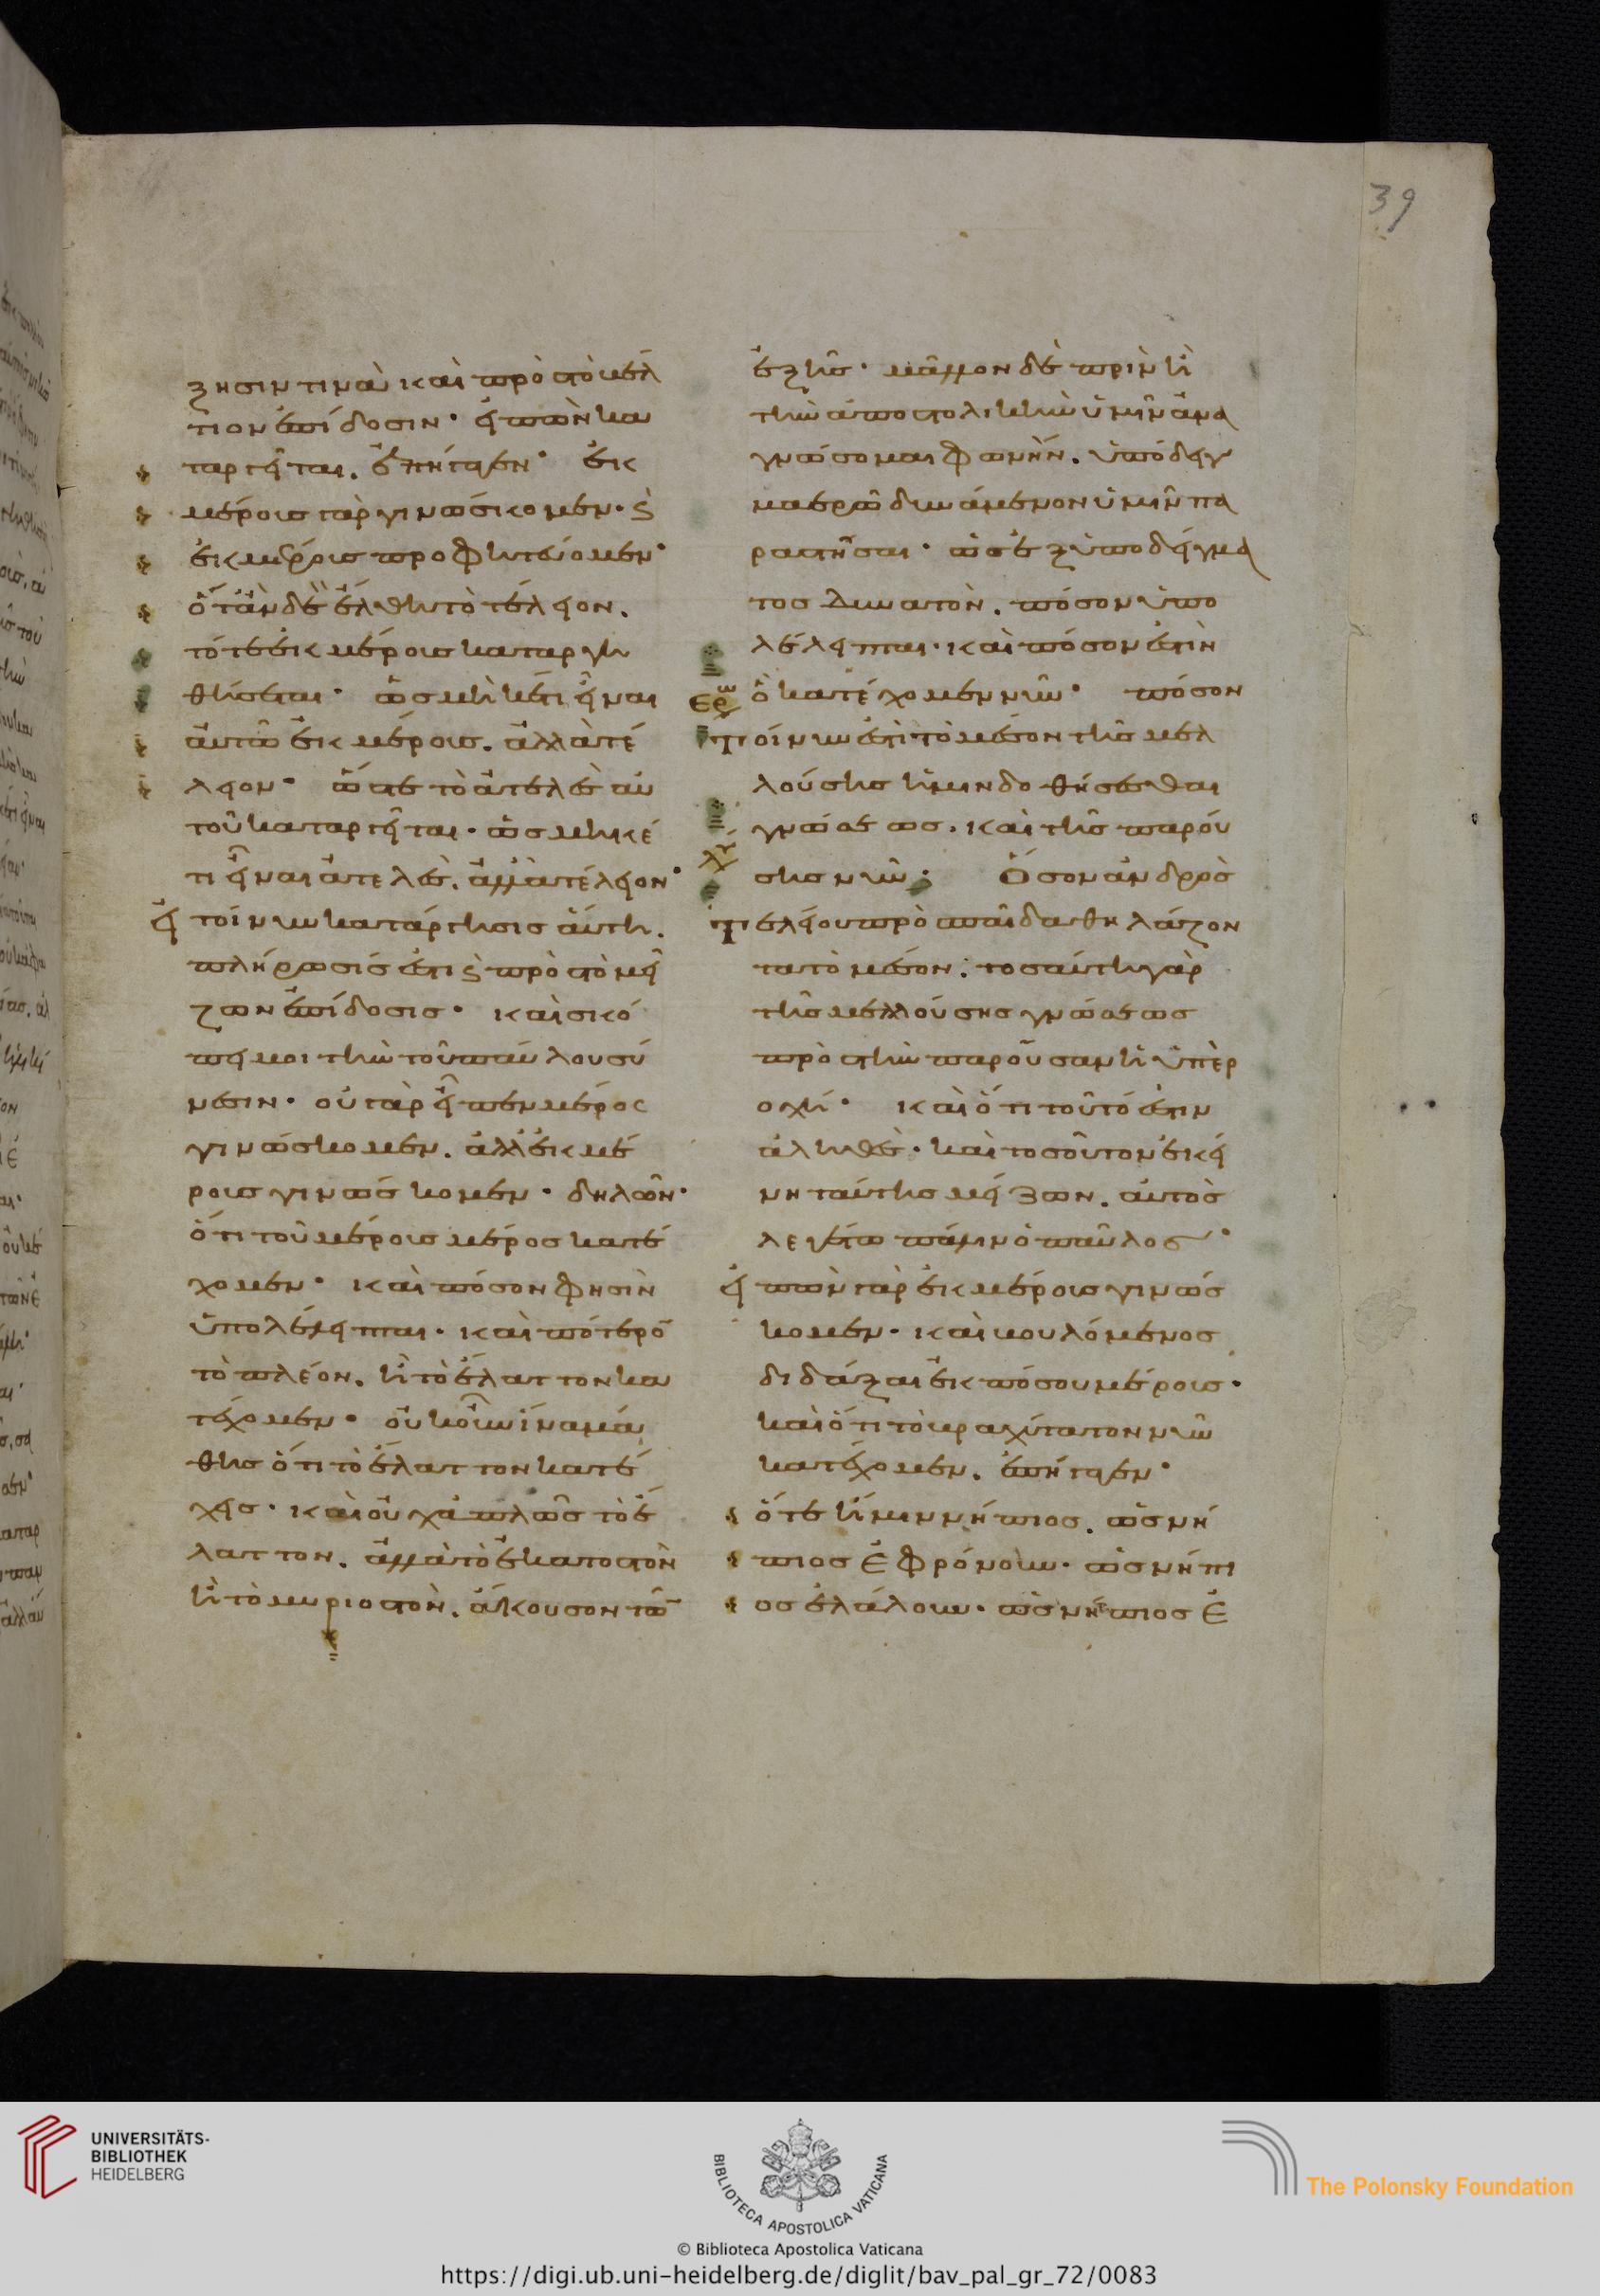 ξησιν τινὰ καὶ πρὸς τὸ βέλ
τιον ἐπίδοσιν· εἰπὼν κα
ταργεῖται, ἐπήγαγεν· ἐκ
μέρους γὰρ γινώσκομεν· ϗ
ἐκ μέρους προφητεύομεν·
ὅτὰν δὲ ἔλθη τὸ τέλειον,
τότε ἐκ μέρους καταργη
θήσεται· ὡς μὴ κέτι εἶναι
αὐτῶ ἐκ μέρους, ἀλλὰ τέ
λειον· ὥστε τὸ ἀτελὲς αὐ
τοῦ καταργεῖται· ὡς μηκέ
τι εἶναι ἀτελὲς, ἀλλὰ τέλειον·
εἰ τοίνυν κατάργησις αὕτη,
πλήρωσίς ἐστι ϗ πρὸς τὸ μεῖ
ζων ἐπίδοσις· καὶ σκό
πει μοι τὴν τοῦ παύλου σύ
νεσιν· οὐ γὰρ εἶπεν μέρος
γινώσκομεν, ἀλλ' ἐκ μέ
ρους γινώσκομεν· δηλῶν·
ὅτι τοῦ μέρους μέρος κατέ
χομεν· καὶ πόσον φησὶν
ὑπολέλειπται· καὶ πότερο̅
τὸ πλέον, ἢ τὸ ἔλαττον κα
τέχομεν· οὐκοῦν ἵνα μά
θης ὅτι τὸ ἔλαττον κατέ
χεις· καὶ οὐχ ἁπλῶς τὸ ἔ
λαττον, ἀλλὰ τὸ ἑκατοστὸν
ἢ τὸ μυριοστὸν, ἄκουσον τῶν
ἑξῆς· μᾶλλον δὲ πρὶν ἢ
τὴν ἀποστολικὴν ὑμῖν ἀνα
γνώσομαι φωνὴν, ὑπόδειγ
μα ἐρῶ δυνάμενον ὑμῖν πα
ραστῆσαι· ὡς ἐξ ὑποδείγμα
τος δυνατὸν, πόσον ὑπο
λέλειπται· καὶ πόσον ἐστὶν
ἐρω ὃ κατέχομεν νῦν· πόσον
τοίνυν ἐστὶ τὸ μέσον τῆς μελ
λούσης ἡμιν δοθήσεσθαι
γνώσεως, καὶ τῆς παρού
λυ σης νῦν· Ὅσον ἀνδρὸς
τελείου πρὸς παῖδα θηλάζον
τα τὸ μέσον· τοσαύτη γὰρ
τῆς μελλούσης γνώσεως
πρὸς τὴν παροῦσαν ἡ ὑπερ
οχή· καὶ ὅτι τοῦτό ἐστιν
ἀληθὲς· καὶ τοσοῦτον ἐκεί
νη ταύτης μείζων, αὐτὸς
λεγέτω πάλιν ὁ παῦλος·
εἰπὼν γὰρ ἐκ μέρους γινώσ
κομεν· καὶ βουλόμενος
διδάξαι ἐκ πόσου μέρους·
καὶ ὅτι τὸ βραχύτατον νῦν
κατέχομεν, ἐπήγαγεν·
ὅτε ἤμιν νήπιος, ὡς νή
πιος ἐφρόνουν· ὡς νήπι
ος ἐλάλουν· ὡς νήπιος ἐ
39
UNIVERSITÄTS-
BIBLIOTHEK
HEIDELBERG
BIBLIOTECA APOSTOLICA VATICANA
The Polonsky Foundation
© Biblioteca Apostolica Vaticana
https://digi.ub.uni-heidelberg.de/diglit/bav_pal_gr_72/0083